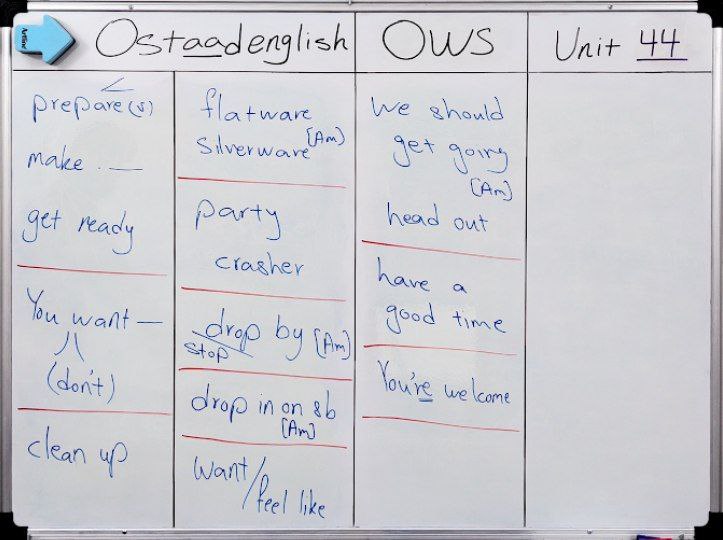 Artline
Ostaadenglish
OWS
Unit 44
prepare(v)
make
get ready
You want
(don't)
clean up
flatware
[Am]
Silverware
party
crasher
drop by [Am]
stop
drop in on sb
[Am]
want/
feel like
We should
get going
[Am]
head out
have a
good time
You're welcome